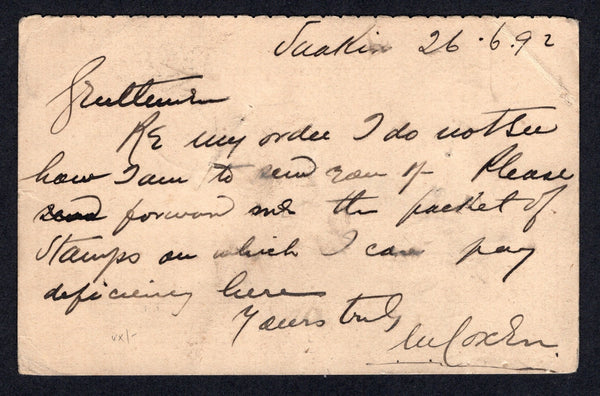 Suakin 26.6.92
Gentlemen
Re my order I do not see
how I am to send you it. Please
send forward me the packet of
Stamps on which I can pay
deficiency here
Yours truly